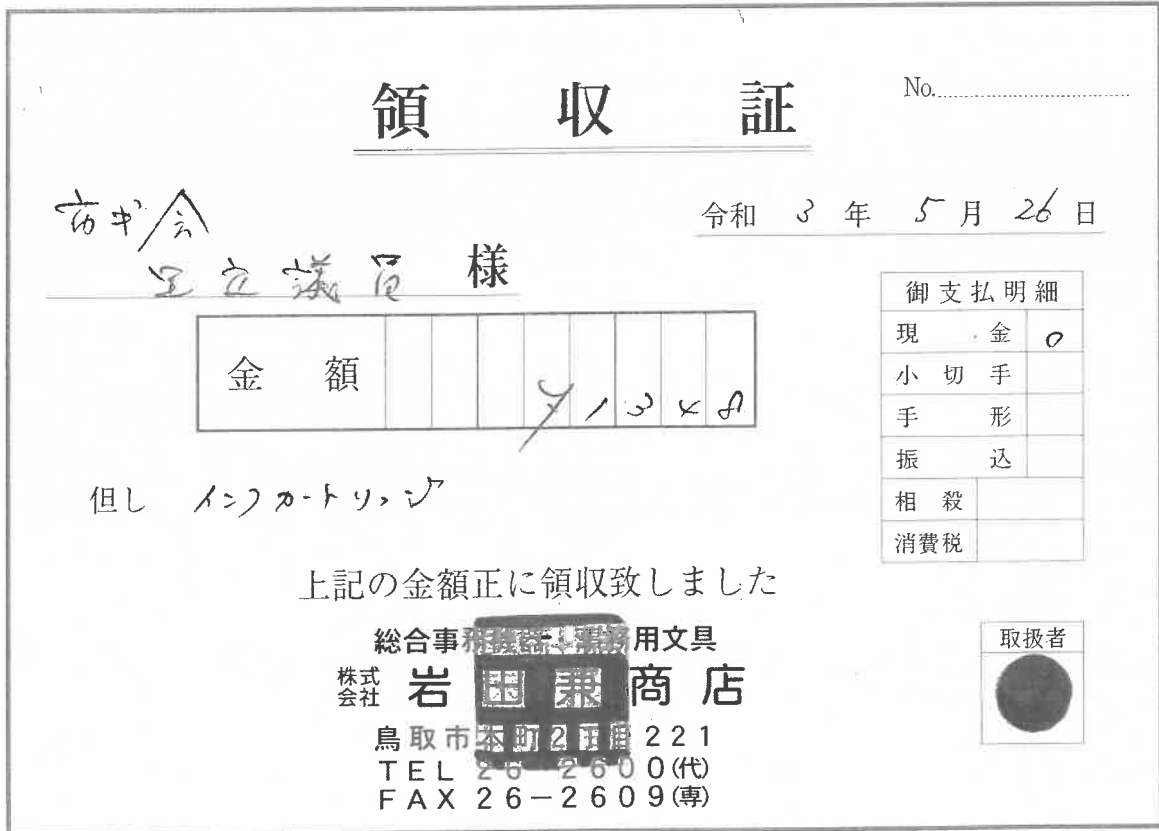 領収証
No.
令和 3 年 5 月 26 日
市ギ会
足立議員 様
金額 ¥1348
御支払明細
現金 0
小切手
手形
振込
相殺
消費税
但し インクカートリッジ
上記の金額正に領収致しました
総合事務機器・事務用文具
株式会社 岩田兼商店
鳥取市本町2丁目221
TEL 26-2600(代)
FAX 26-2609(専)
取扱者